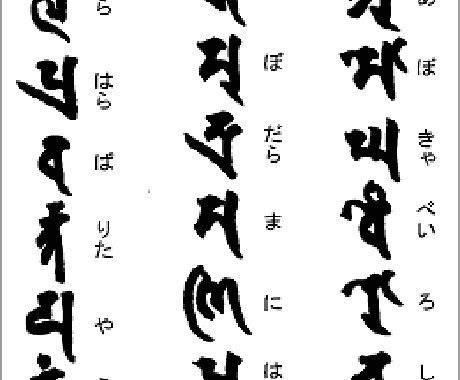 𑖦𑖺𑖑𑖪𑖹𑖨𑖺
ぼ きゃ べい ろ し
𑖦𑖲𑖟𑖿𑖨𑖯𑖦𑖜𑖰
ぼ だら ま に は
𑖢𑖿𑖨𑖪𑖨𑖿𑖝𑖧
ら はら ば りた や